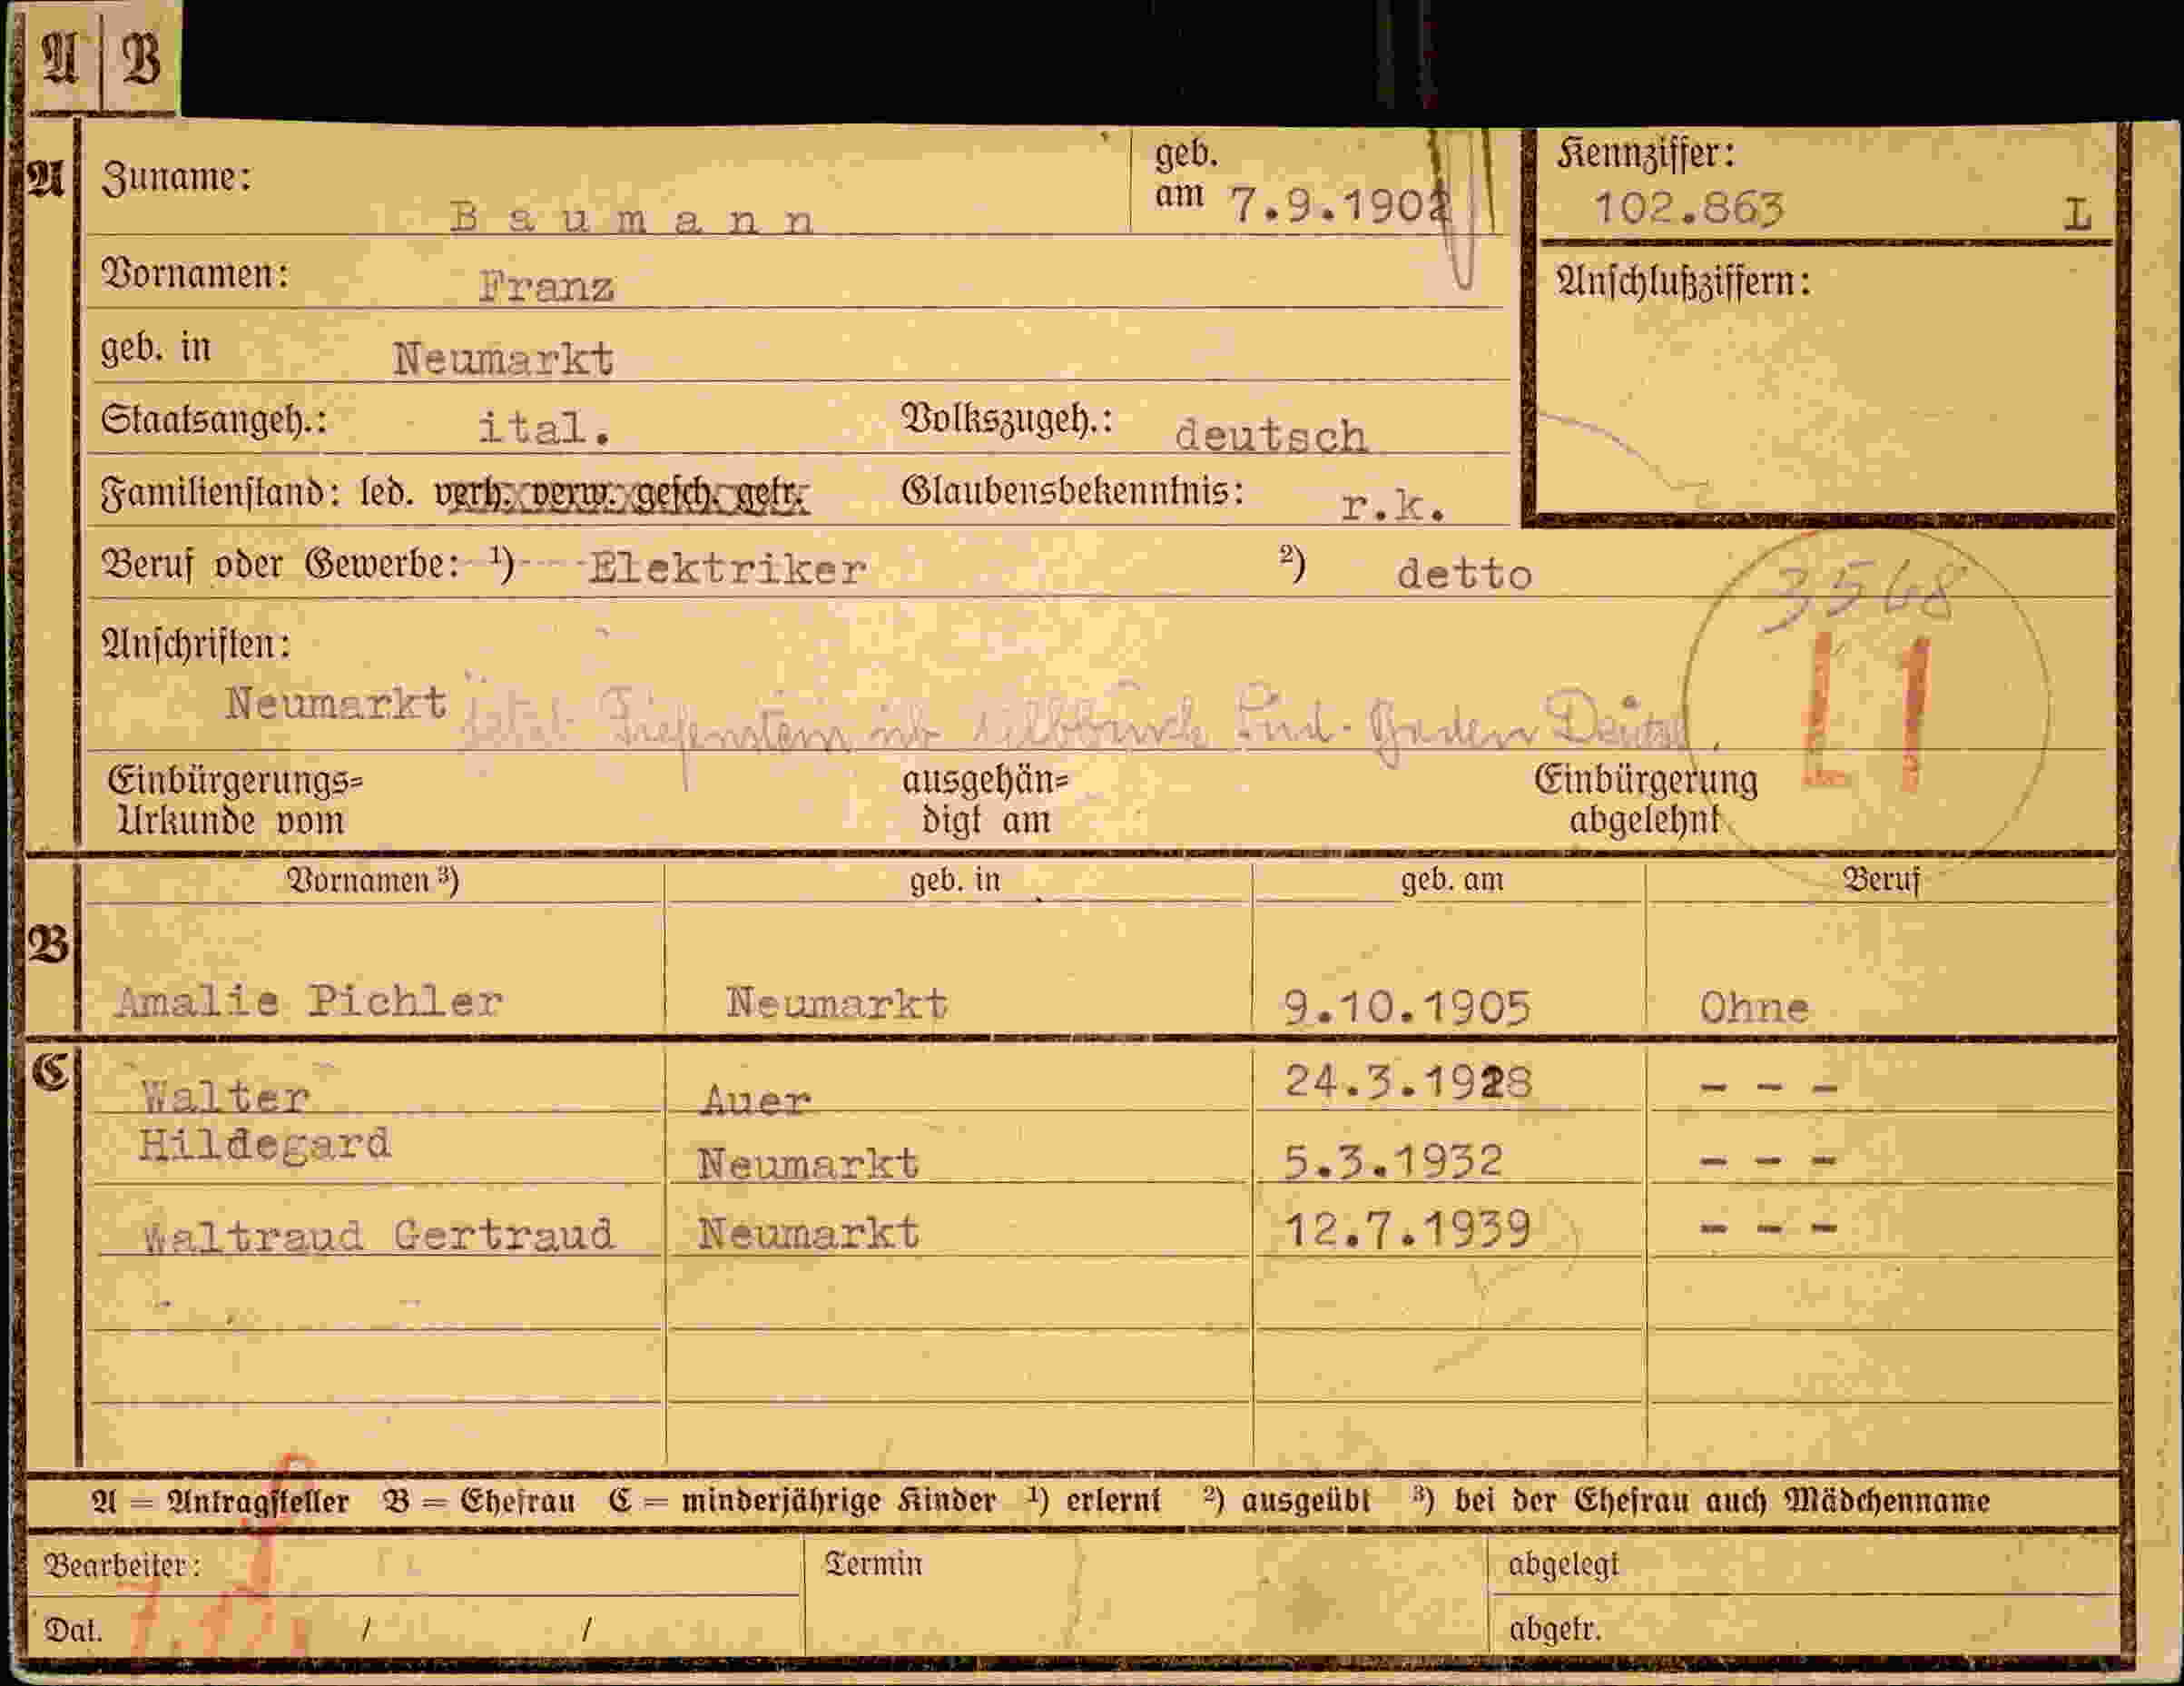 A B
A Zuname: Baumann geb. am 7.9.1902 Kennziffer: 102.863 L
Vornamen: Franz Anschlußziffern:
geb. in Neumarkt
Staatsangeh.: ital. Volkszugeh.: deutsch
Familienstand: led. verh. verw. gesch. getr. Glaubensbekenntnis: r.k.
Beruf oder Gewerbe: ¹) Elektriker ²) detto
3568
Anschriften:
L1
Neumarkt jetzt Tiefenstein Baden
Einbürgerungs- ausgehän- Einbürgerung
Urkunde vom digt am abgelehnt
Vornamen ³) geb. in geb. am Beruf
B
Amalie Pichler Neumarkt 9.10.1905 Ohne
C Walter Auer 24.3.1928 - - -
Hildegard Neumarkt 5.3.1932 - - -
Waltraud Gertraud Neumarkt 12.7.1939 - - -
A = Antragsteller B = Ehefrau C = minderjährige Kinder ¹) erlernt ²) ausgeübt ³) bei der Ehefrau auch Mädchenname
Bearbeiter: Termin abgelegt
Dat. / / abgetr.